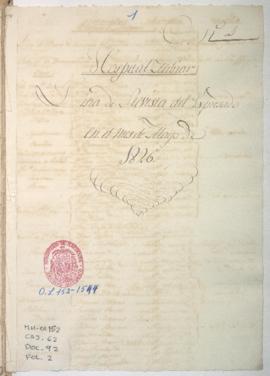 1
Hospital Militar
Lista de Revista del Expresado
en el mes de Mayo de
1826
O.L. 152-1544
MH-OL152
CAJ. 62
DOC. 92
FOL. 2